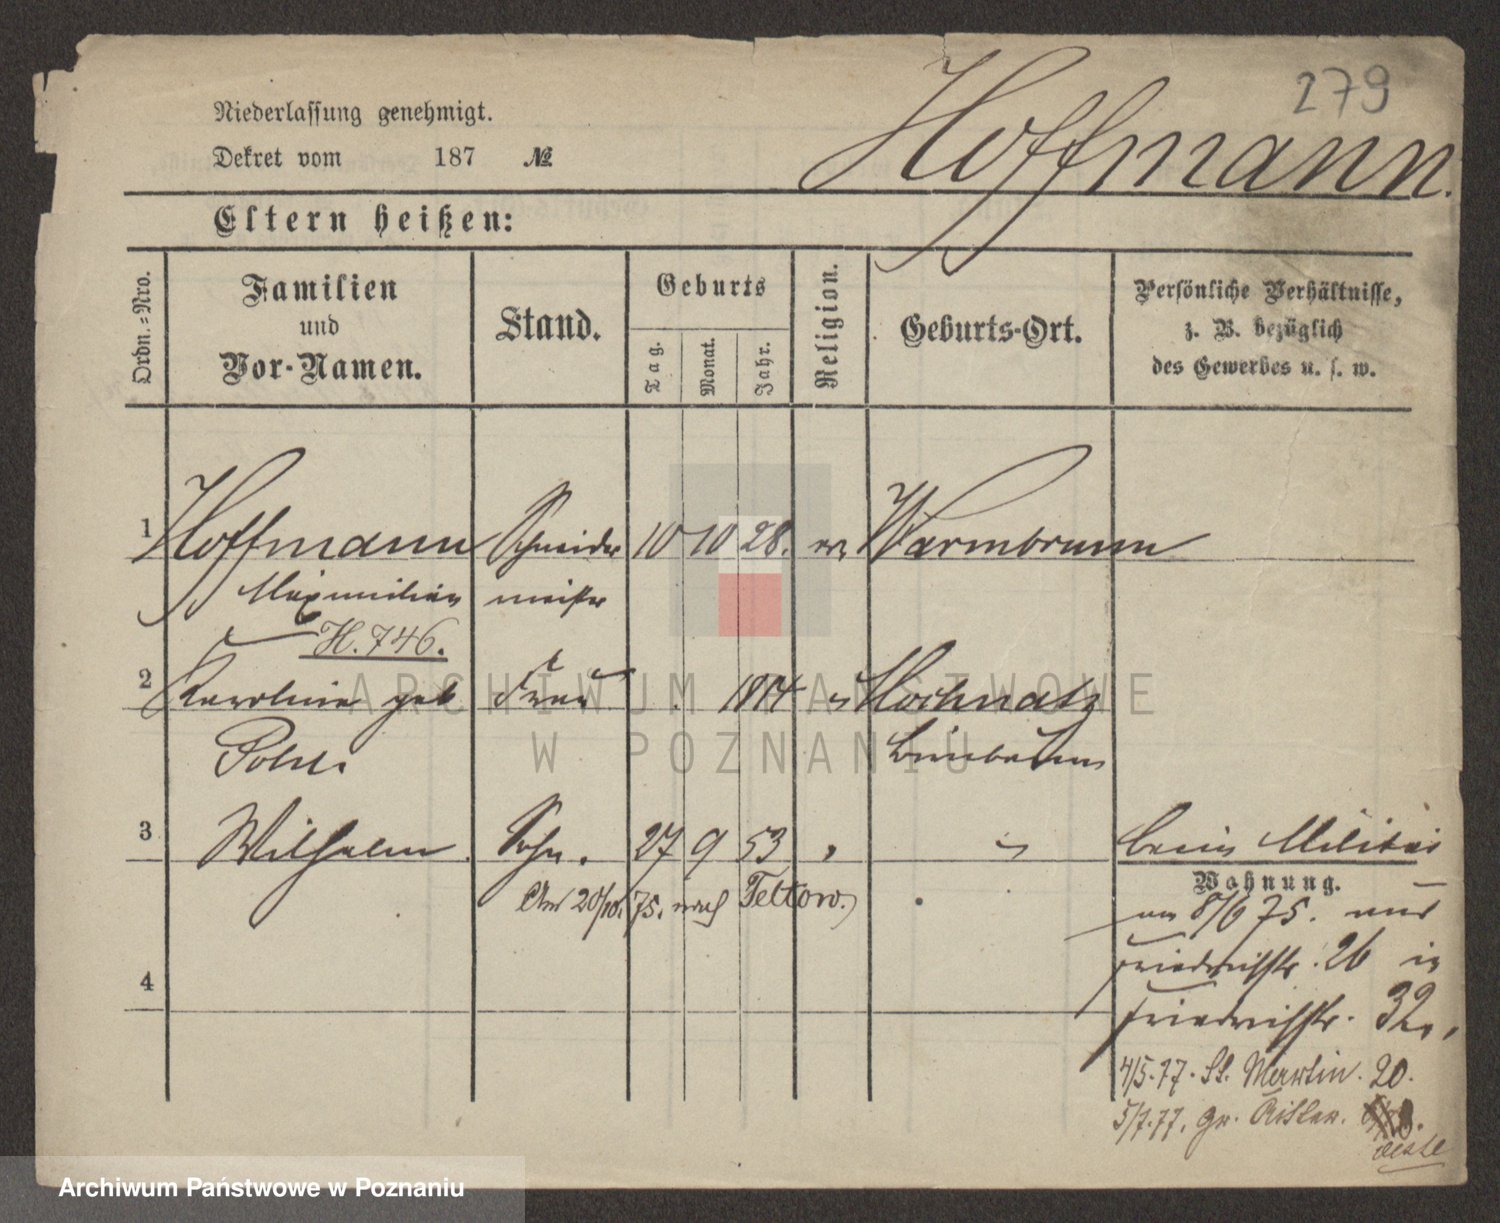 279
Hoffmann.
Niederlassung genehmigt.
Dekret vom 187 №
Eltern heißen:
Ordn.-Nro.
Familien und Vor-Namen.
Stand.
Geburts
Tag.
Monat.
Jahr.
Religion.
Geburts-Ort.
Persönliche Verhältnisse,
z. B. bezüglich
des Gewerbes u. s. w.
1 Hoffmann Schneider 10 10 28. ev. Warmbrunn
Maximilian meister
H. 746.
2 Karoline geb Frau 1814 Hochnatz
Birnbaum
3 Wilhelm. Sohn. 27 9 53 " " beim Militär
Wohnung.
20/10. 75. nach Teltow.
am 8/6 75. aus
Friedrichstr. 26 in
4
Friedrichstr. 32.
4/5.77. St. Martin. 20.
5/7.77. gr. Ritter. 8.
ARCHIWUM PAŃSTWOWE
W POZNANIU
Archiwum Państwowe w Poznaniu